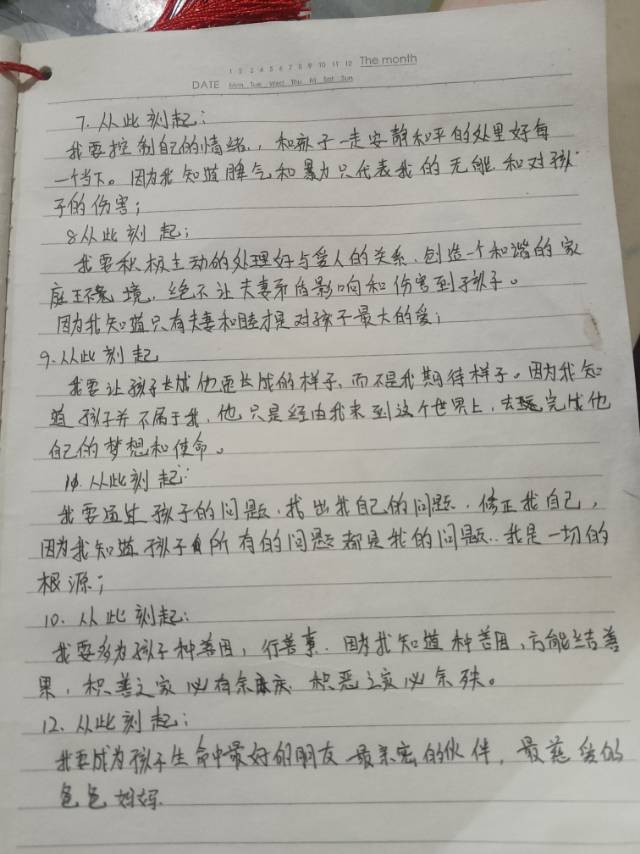 1 2 3 4 5 6 7 8 9 10 11 12 The month
DATE Mon Tue Wed Thu Fri Sat Sun
7. 从此刻起：
我要控制自己的情绪，和孩子一走安静和平的处里好每
一个当下。因为我知道脾气和暴力只代表我的无能和对孩
子的伤害；
8 从此刻起；
我要积极主动的处理好与爱人的关系，创造一个和谐的家
庭环境，绝不让夫妻矛盾影响和伤害到子孩子。
因为我知道只有夫妻和睦才是对孩子最大的爱；
9. 从此刻起
我要让孩子长成他要长成的样子，而不是我期待样子。因为我知
道孩子并不属于我，他只是经由我来到这个世界上，去完成他
自己的梦想和使命。
11. 从此刻起：
我要通过孩子的问题，找出我自己的问题，修正我自己，
因为我知道孩子所有的问题都是我的问题，我是一切的
根源；
10. 从此刻起：
我要多为孩子种善因，行善事．因为我知道种善因，方能结善
果，积善之家必有余庆 积恶之家必余殃。
12. 从此刻起；
我要成为孩子生命中最好的朋友 最亲密的伙伴，最慈爱的
爸爸妈妈．